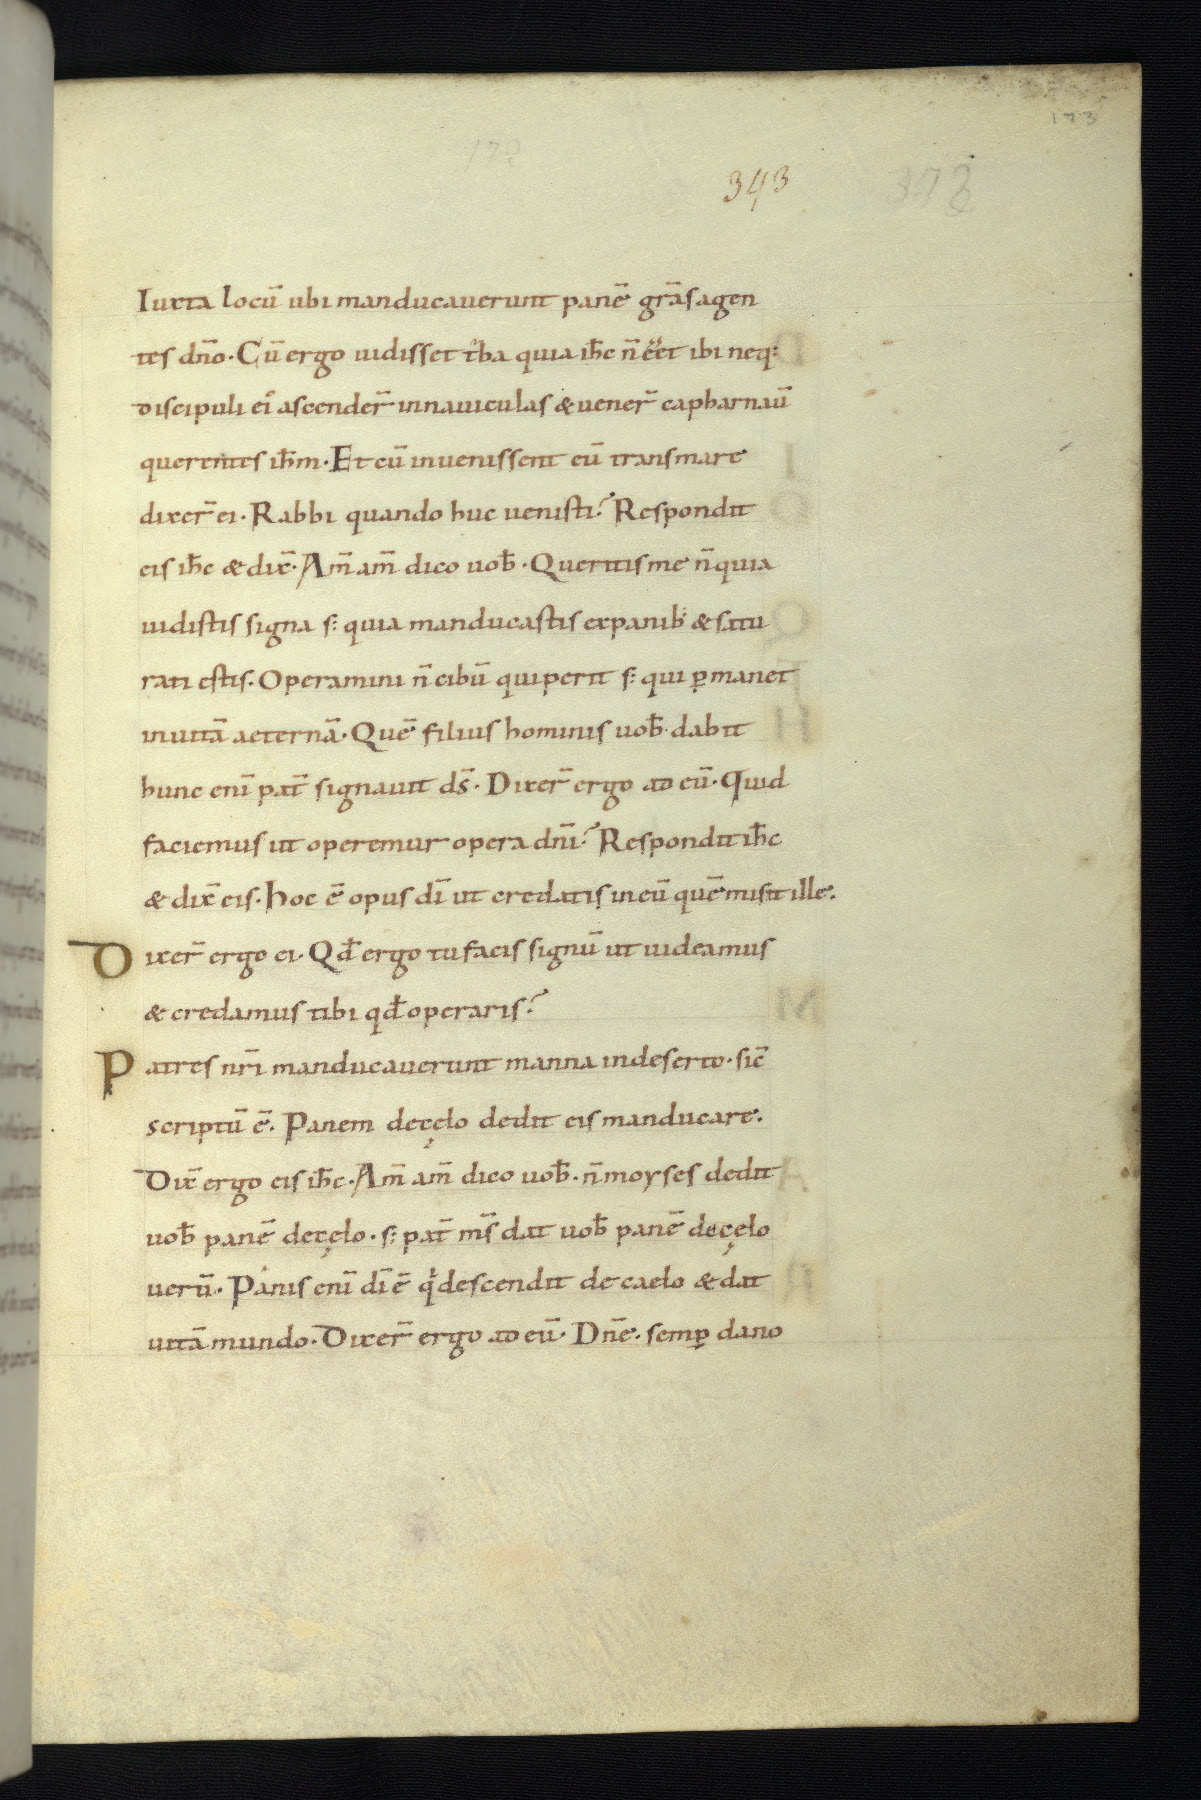 173
343
Iuxta locū ubi manducauerunt panē grās agen
tes dn̄o· Cū ergo uidisset t̔ba quia ih̄c n̄ eēt ibi neq;
discipuli ei᷒ ascender̄ in nauiculas & uener̄ capharnaū
querentes ih̄m· Et cū inuenissent eū trans mare
dixer̄ ei· Rabbi quando huc uenisti? Respondit
eis ih̄c & dix̄· Am̄ am̄ dico uob̄· Queritis me n̄ quia
uidistis signa s; quia manducastis ex panib; & satu
rati estis. Operamini n̄ cibū qui perit s; qui ꝑmanet
in uitā aeternā· Quē filius hominis uob̄ dabit
hunc enī pat̄ signauit dс̄· Dixer̄ ergo ad eū· Quid
faciemus ut operemur opera dn̄i? Respondit ih̄c
& dix̄ eis· Hoc ē opus dī ut credatis in eū quē misit ille.
Dixer̄ ergo ei· Qd̄ ergo tu facis signū ut uideamus
& credamus tibi qd̄ operaris?
Patres nr̄i manducauerunt manna in deserto· sic̄
scriptū ē. Panem de cęlo dedit eis manducare.
Dix̄ ergo eis ih̄c· Am̄ am̄ dico uob̄· n̄ moyses dedit
uob̄ panē de cęlo· s; pat̄ ms̄ dat uob̄ panē de cęlo
uerū· Panis enī dī ē qͥ descendit de caelo & dat
uitā mundo· Dixer̄ ergo ad eū· Dn̄e. semꝑ da no